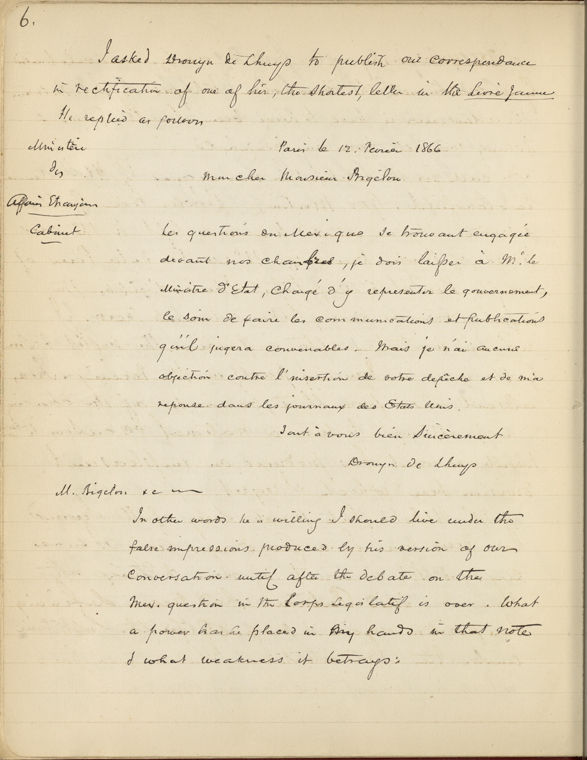 6.
I asked Drouyn de Lhuys to publish our correspondance
in rectification of one of his, the shortest, letter in the Livre Jaune
He replied as follows
Ministère
des
Affaires Etrangères
Cabinet
Paris le 12. Fevrier 1866
Mon cher Monsieur Bigelow
Les questions du Mexique se trouvant engagée
devant nos chambres, je dois laisser à Mr le
Ministre d'Etat, chargé d'y representer le gouvernement,
le soin de faire les communications et publications
qu'il jugera convenables. Mais je n'ai aucune
objection contre l'insertion de votre depêche et de ma
reponse dans les journaux des Etats Unis.
Tout à vous bien sincèrement
Drouyn de Lhuys
M. Bigelow &c
In other words he is willing I should live under the
false impressions produced by his version of our
conversation until after the debate on the
Mex. question in the Corps Legislatif is over. What
a power has he placed in my hands in that note
& what weakness it betrays: